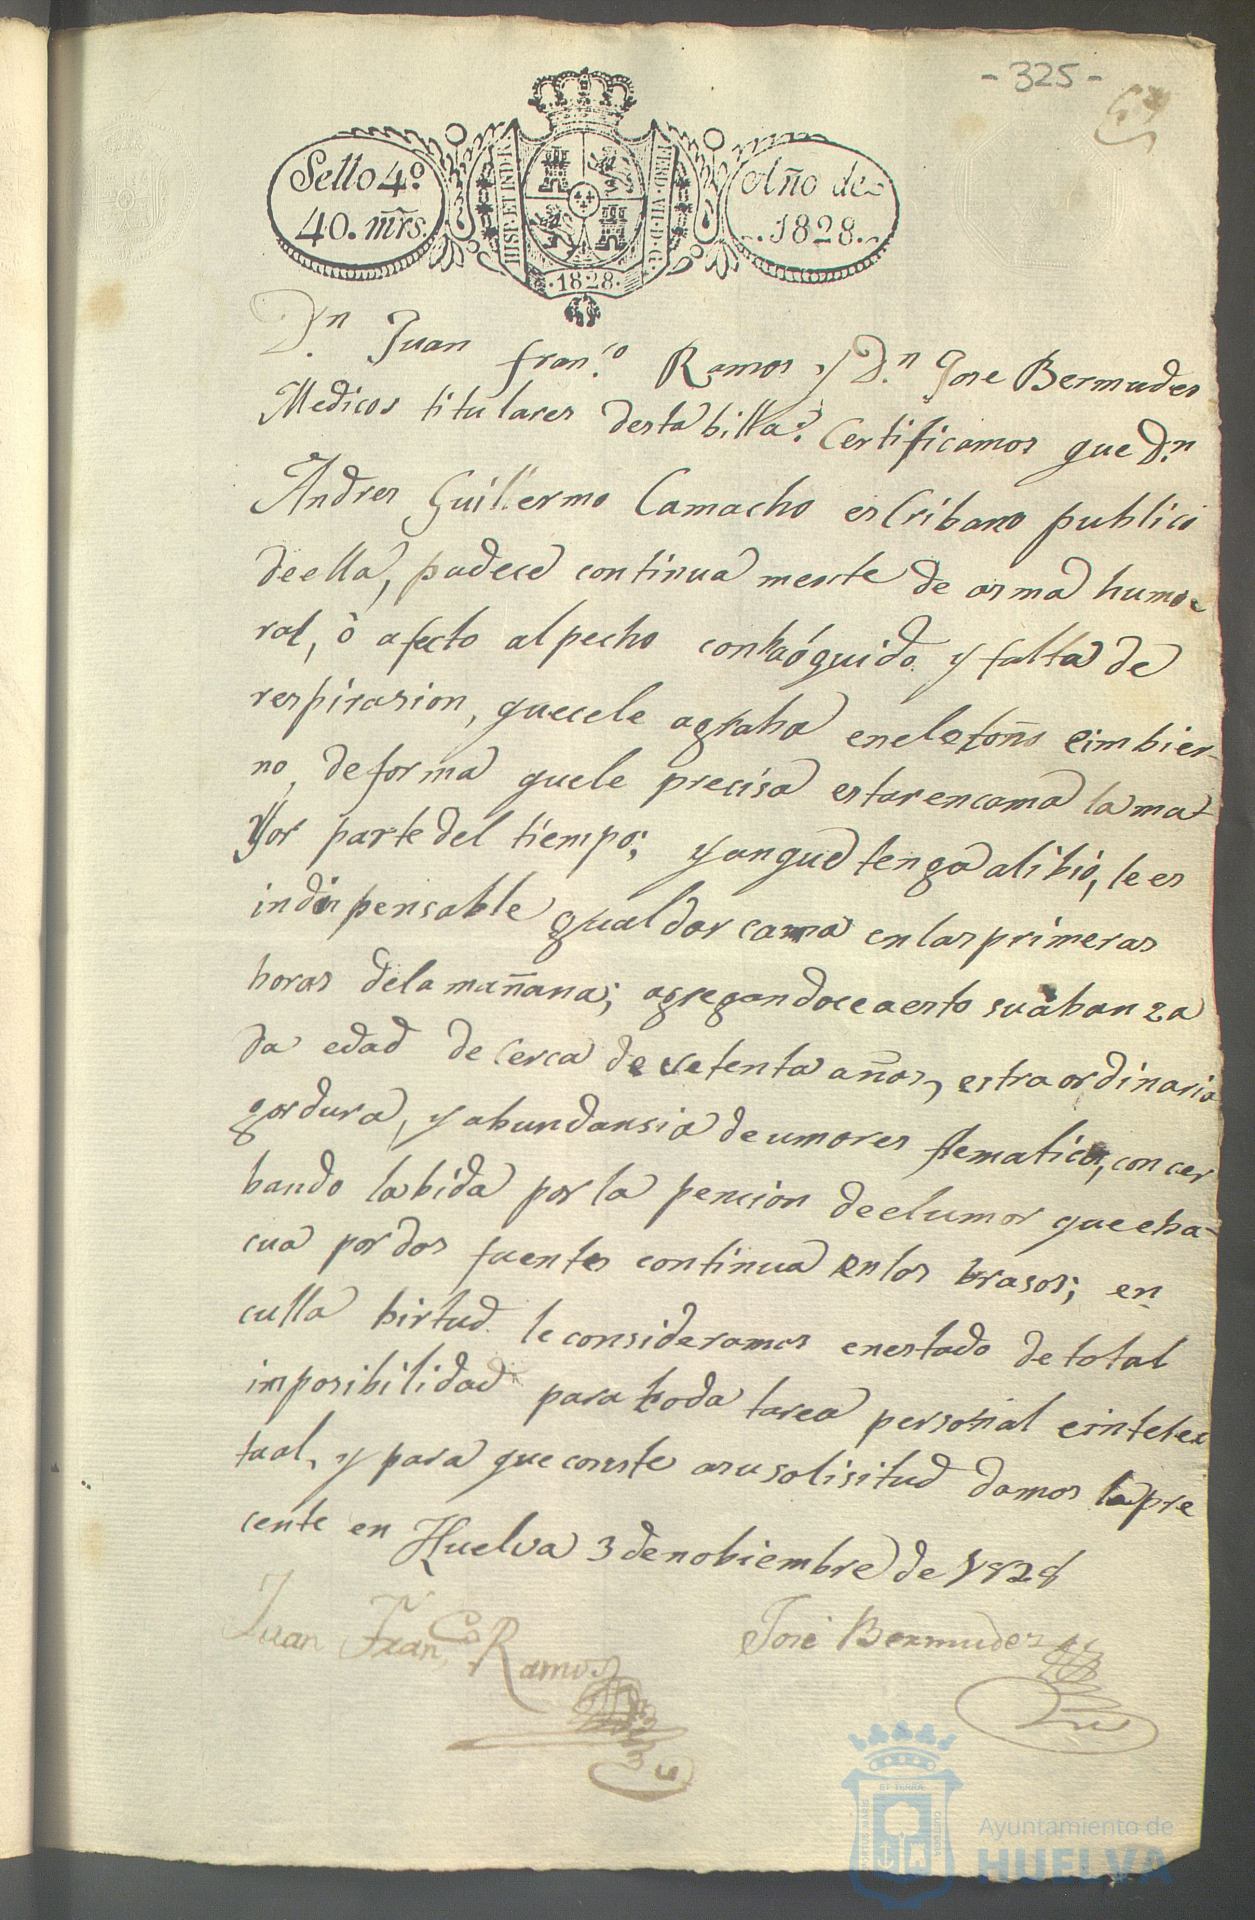 - 325 -
Sello 4º
40. mrs.
HISP. ET IND. R.
FERD. VII. D. G.
1828.
Año de
1828.
Dn. Juan Franco. Ramos y Dn. Jose Bermudes
Medicos titulares desta billa: Certificamos que Dn
Andres Guillermo Camacho esCribano publico
deella, padece continua mente de asma humo
ral, ò afecto al pecho con y falta de
respirasion, quecele agraba enel otoño eimbier-
no, de forma quele precisa estar encama la ma-
yor parte del tiempo; y anque tenga alibio, le es
indispensable gualdar cama en las primeras
horas dela mañana; agregandoce a esto su abanza
da edad de cerca de setenta años, estraordinaria
gordura, y abundansia de umores flematicos, con cer
bando la bida por la pencion deel umor que eba-
cua por dos fuentes continua en los brasos; en
culla birtud le consideramos en estado de total
imposibilidad para toda tarea personal eintelec
tual, y para que conste asu solisitud damos la pre
cente en Huelva 3 de nobiembre de 1828
Juan Franco. Ramos
José Bermudez
Ayuntamiento de
HUELVA